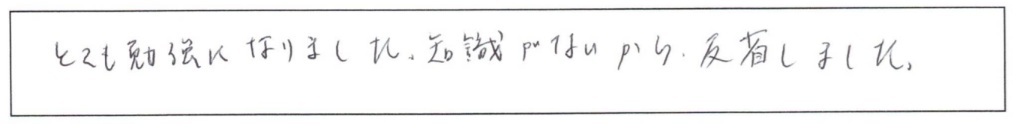 とても勉強になりました。知識がないから、反省しました。